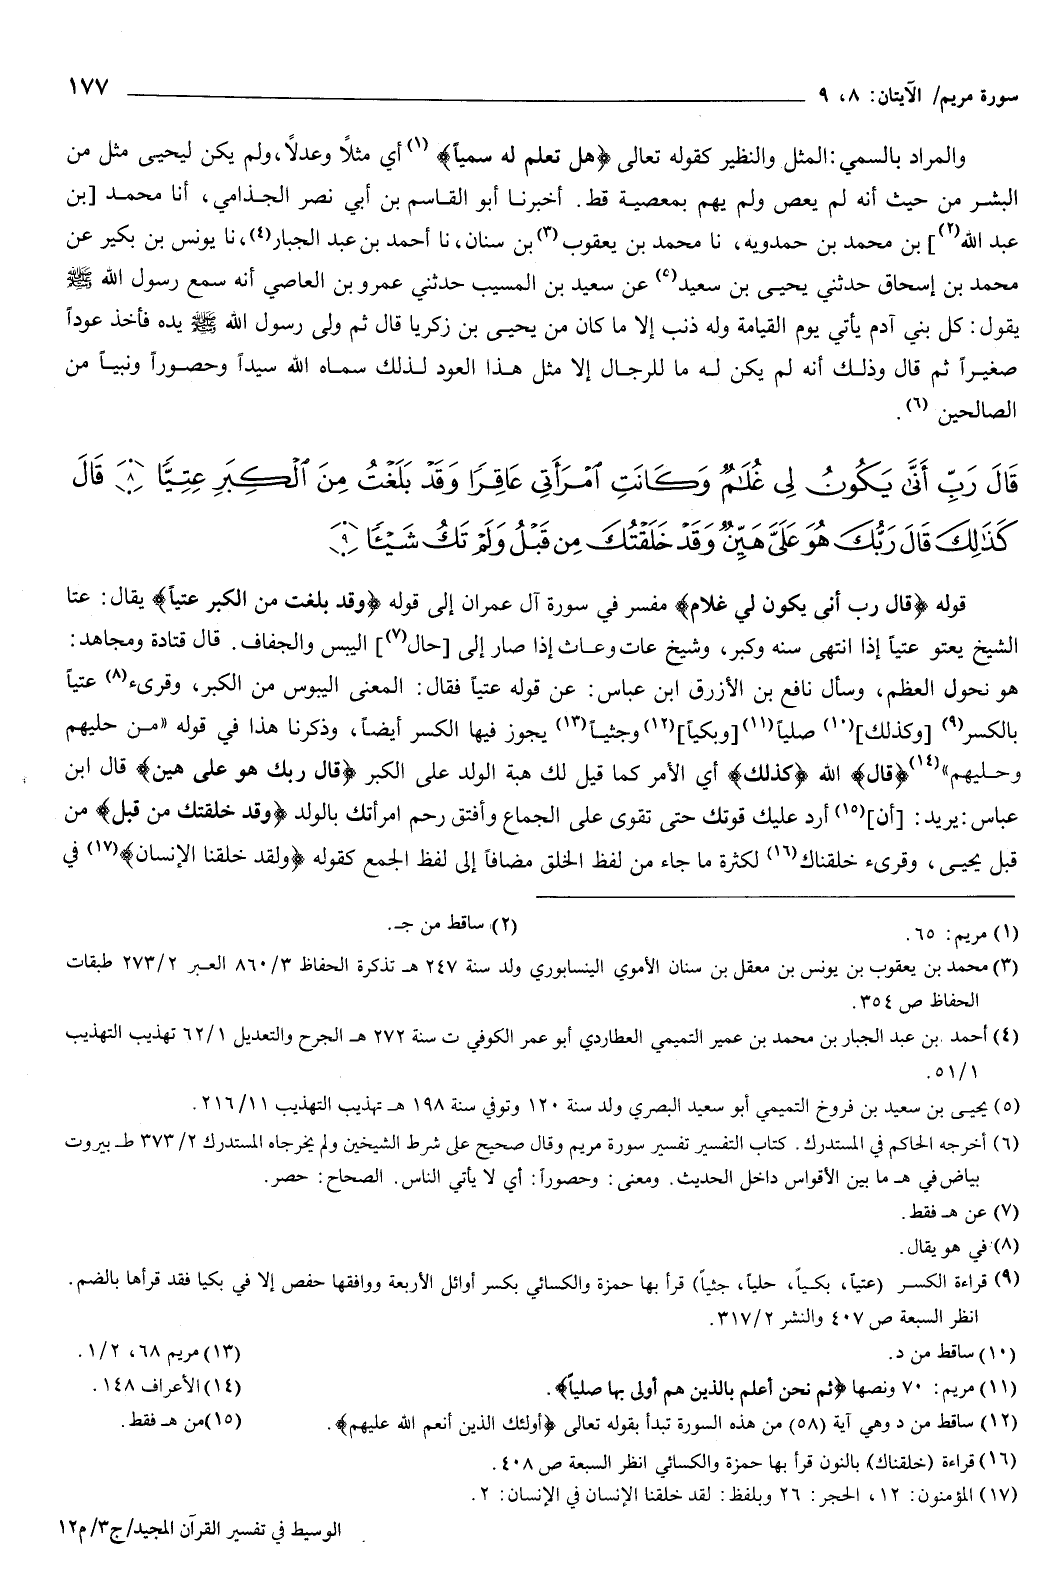 سورة مريم/ الآيتان: ٨، ٩ ١٧٧
والمراد بالسمي: المثل والنظير كقوله تعالى ﴿هل تعلم له سمياً﴾ (١) أي مثلاً وعدلاً، ولم يكن ليحيى مثل من
البشر من حيث أنه لم يعص ولم يهم بمعصية قط. أخبرنا أبو القاسم بن أبي نصر الجذامي، أنا محمد [بن
عبد الله(٢)] بن محمد بن حمدويه، نا محمد بن يعقوب(٣) بن سنان، نا أحمد بن عبد الجبار(٤)، نا يونس بن بكير عن
محمد بن إسحاق حدثني يحيى بن سعيد(٥) عن سعيد بن المسيب حدثني عمرو بن العاصي أنه سمع رسول الله ﷺ
يقول: كل بني آدم يأتي يوم القيامة وله ذنب إلا ما كان من يحيى بن زكريا قال ثم ولى رسول الله ﷺ يده فأخذ عوداً
صغيراً ثم قال وذلك أنه لم يكن له ما للرجال إلا مثل هذا العود لذلك سماه الله سيداً وحصوراً ونبياً من
الصالحين (٦).
قَالَ رَبِّ أَنَّىٰ يَكُونُ لِي غُلَٰمٌ وَكَانَتِ ٱمْرَأَتِي عَاقِرًا وَقَدْ بَلَغْتُ مِنَ ٱلْكِبَرِ عِتِيًّا ﴿٨﴾ قَالَ
كَذَٰلِكَ قَالَ رَبُّكَ هُوَ عَلَيَّ هَيِّنٌ وَقَدْ خَلَقْتُكَ مِن قَبْلُ وَلَمْ تَكُ شَيْـًٔا ﴿٩﴾
قوله ﴿قال رب أنى يكون لي غلام﴾ مفسر في سورة آل عمران إلى قوله ﴿وقد بلغت من الكبر عتياً﴾ يقال: عتا
الشيخ يعتو عتياً إذا انتهى سنه وكبر، وشيخ عات وعاث إذا صار إلى [حال(٧)] اليبس والجفاف. قال قتادة ومجاهد:
هو نحول العظم، وسأل نافع بن الأزرق ابن عباس: عن قوله عتياً فقال: المعنى اليبوس من الكبر، وقرىء(٨) عتياً
بالكسر(٩) [وكذلك](١٠) صلياً(١١) [وبكياً](١٢) وجثياً(١٣) يجوز فيها الكسر أيضاً، وذكرنا هذا في قوله «من حليهم
وحليهم»(١٤) ﴿قال﴾ الله ﴿كذلك﴾ أي الأمر كما قيل لك هبة الولد على الكبر ﴿قال ربك هو على هين﴾ قال ابن
عباس: يريد: [أن](١٥) أرد عليك قوتك حتى تقوى على الجماع وأفتق رحم امرأتك بالولد ﴿وقد خلقتك من قبل﴾ من
قبل يحيى، وقرىء خلقناك(١٦) لكثرة ما جاء من لفظ الخلق مضافاً إلى لفظ الجمع كقوله ﴿ولقد خلقنا الإنسان﴾(١٧) في
(١) مريم: ٦٥. (٢) ساقط من جـ.
(٣) محمد بن يعقوب بن يونس بن معقل بن سنان الأموي الينسابوري ولد سنة ٢٤٧ هـ تذكرة الحفاظ ٨٦٠/٣ العبر ٢٧٣/٢ طبقات
الحفاظ ص ٣٥٤.
(٤) أحمد بن عبد الجبار بن محمد بن عمير التميمي العطاردي أبو عمر الكوفي ت سنة ٢٧٢ هـ الجرح والتعديل ٦٢/١ تهذيب التهذيب
٥١/١.
(٥) يحيى بن سعيد بن فروخ التميمي أبو سعيد البصري ولد سنة ١٢٠ وتوفي سنة ١٩٨ هـ تهذيب التهذيب ٢١٦/١١.
(٦) أخرجه الحاكم في المستدرك. كتاب التفسير تفسير سورة مريم وقال صحيح على شرط الشيخين ولم يخرجاه المستدرك ٣٧٣/٢ طـ بيروت
بياض في هـ ما بين الأقواس داخل الحديث. ومعنى: وحصوراً: أي لا يأتي الناس. الصحاح: حصر.
(٧) عن هـ فقط.
(٨) في هو يقال.
(٩) قراءة الكسر (عتياً، بكياً، حلياً، جثياً) قرأ بها حمزة والكسائي بكسر أوائل الأربعة ووافقها حفص إلا في بكيا فقد قرأها بالضم.
انظر السبعة ص ٤٠٧ والنشر ٣١٧/٢.
(١٠) ساقط من د. (١٣) مريم ٦٨، ١/٢.
(١١) مريم: ٧٠ ونصها ﴿ثم نحن أعلم بالذين هم أولى بها صلياً﴾. (١٤) الأعراف ١٤٨.
(١٢) ساقط من د وهي آية (٥٨) من هذه السورة تبدأ بقوله تعالى ﴿أولئك الذين أنعم الله عليهم﴾. (١٥) من هـ فقط.
(١٦) قراءة (خلقناك) بالنون قرأ بها حمزة والكسائي انظر السبعة ص ٤٠٨.
(١٧) المؤمنون: ١٢، الحجر: ٢٦ وبلفظ: لقد خلقنا الإنسان في الإنسان: ٢.
الوسيط في تفسير القرآن المجيد/ ج٣/ م١٢